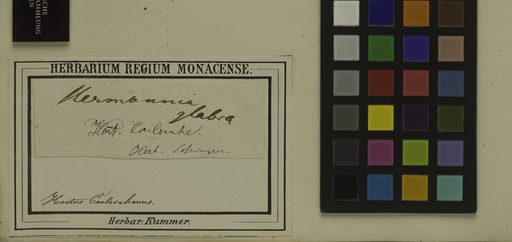 SCHE
SAMMLUNG
EN
HERBARIUM REGIUM MONACENSE.
Hermannia
glabra
Hort. Carlsruhe.
Herb.
Hortus Carlsruhanus.
Herbar. Kummer.